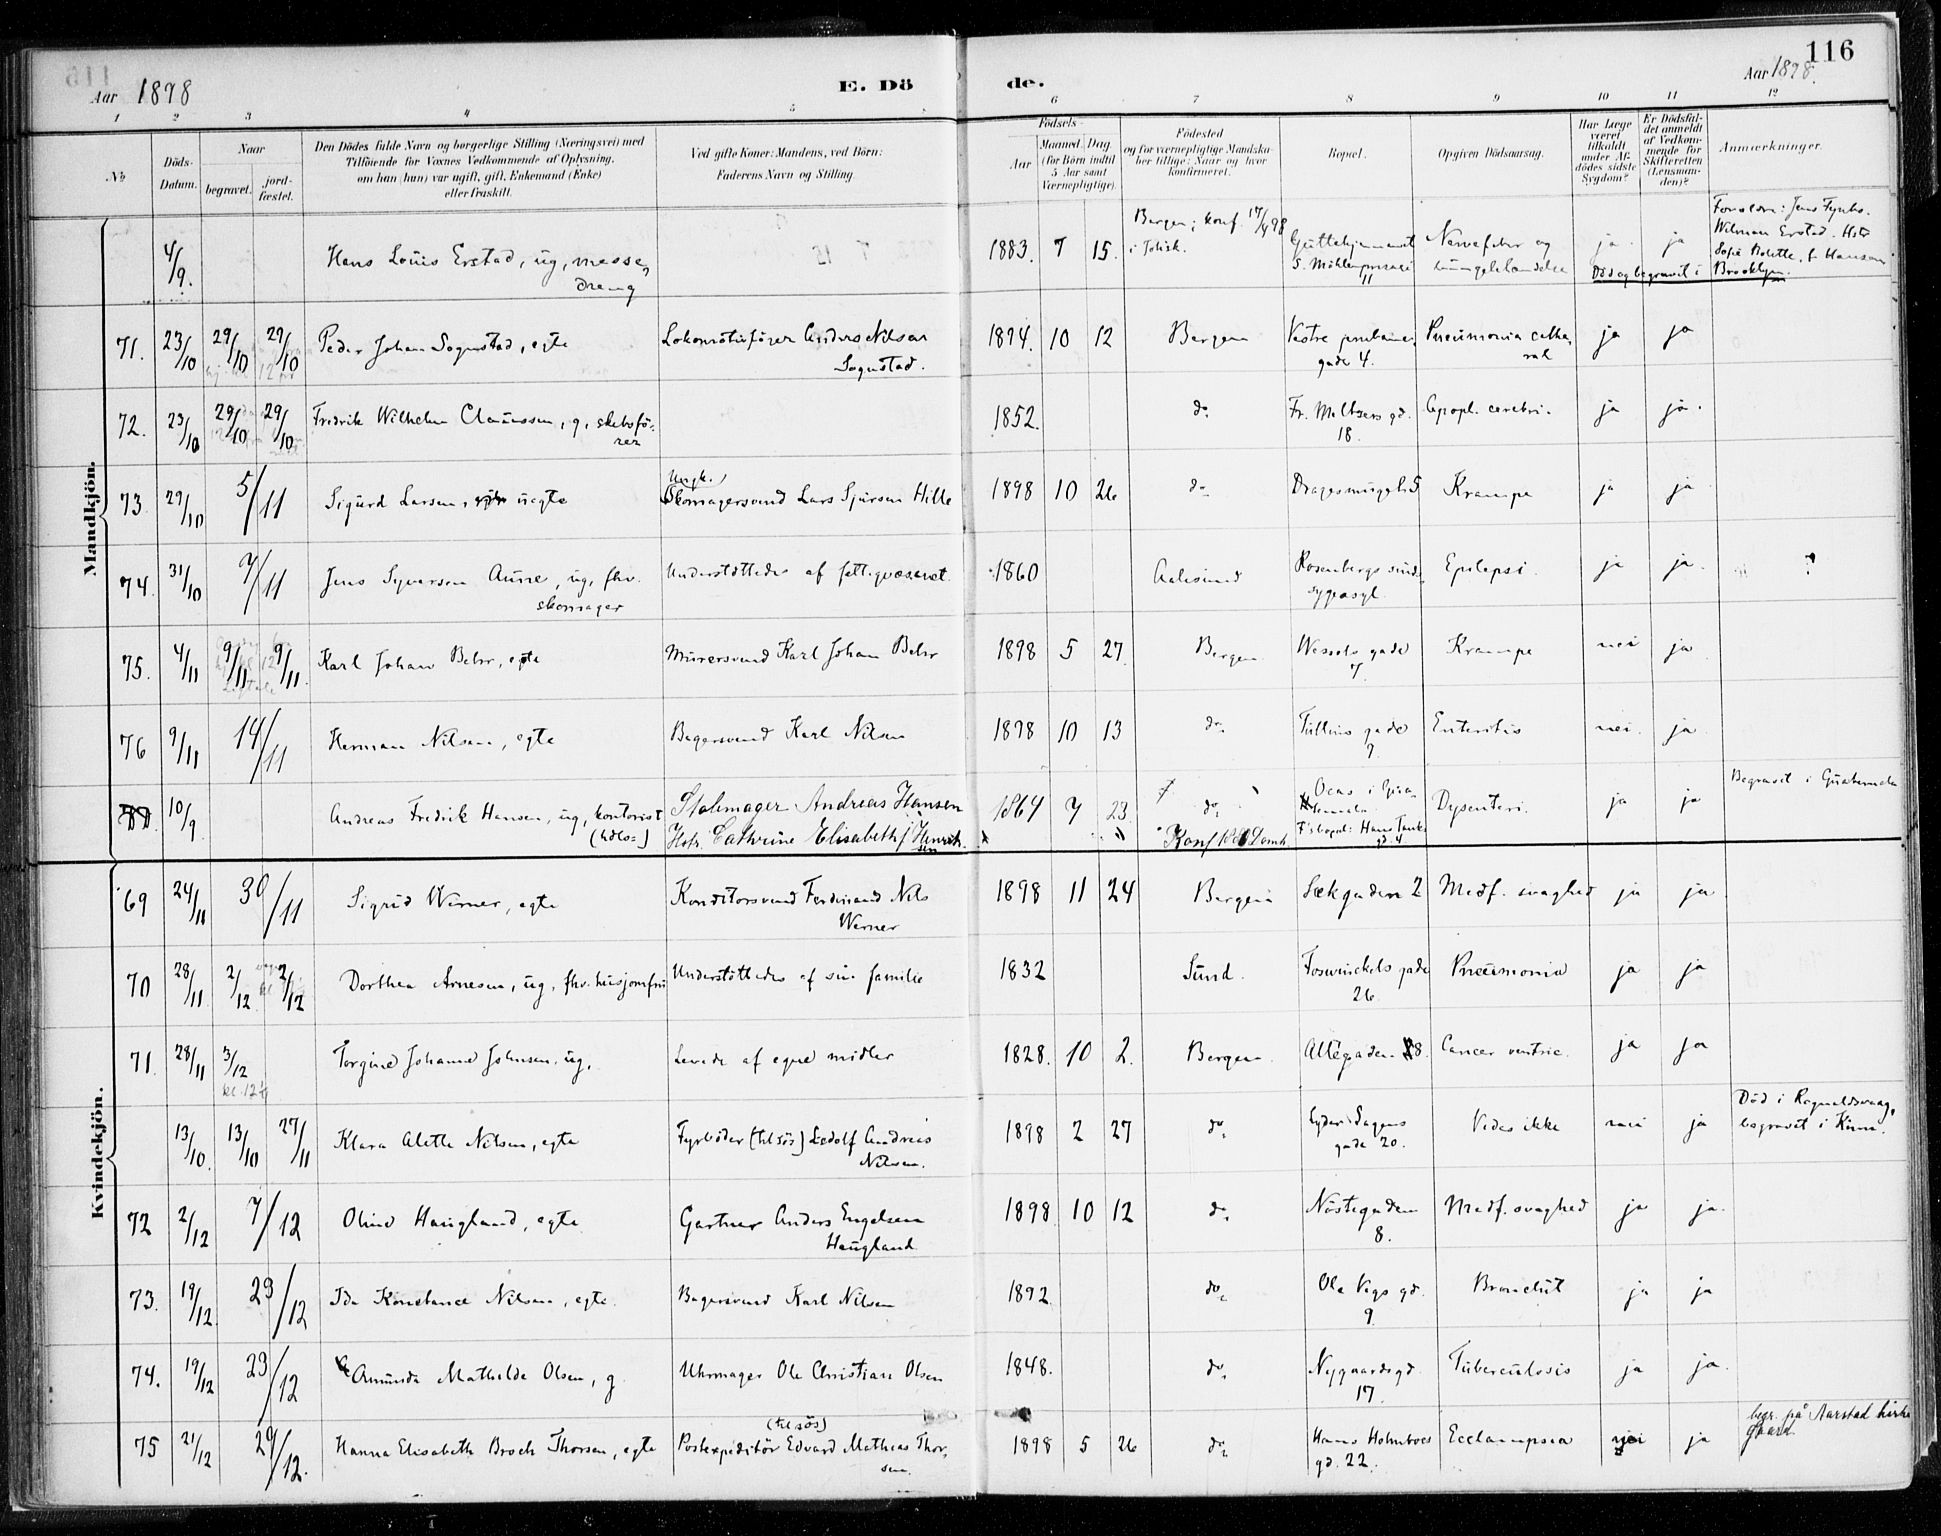 116
Aar 1898 E. Dö de. Aar 1898.
1 2 3 4 5 6 7 8 9 10 11 12
No Döds-Datum. Naar begravet. jordfæstet. Den Dödes fulde Navn og borgerlige Stilling (Næringsvei) med Tilföiende for Voxnes Vedkommende af Oplysning, om han (hun) var ugift, gift, Enkemand (Enke) eller fraskilt. Ved gifte Koner: Mandens, ved Börn: Faderens Navn og Stilling. Födsels- Aar Maaned. Dag. (for Börn indtil 5 Aar samt Værnepligtige). Födested og for værnepligtige Mandskaber tillige: Naar og hvor konfirmeret. Bopæl. Opgiven Dödsaarsag. Har Læge været tilkaldt under Afdödes sidste Sygdom? Er Dödsfaldet anmeldt af Vedkommende for Skifteretten (Lensmanden)? Anmærkninger.
Mandkjön.
4/9. Hans Louis Erstad, ug, messedreng 1883. 7 15. Bergen; konf. 17/4 98 Guttehjemmet 11 Nervefeber og ja. ja Død og begravet i Brooklyn.
71. 23/10 29/10 29/10 Peder Johan Sognstad, egte Lokomotivfører Anders Nilsen Sognstad. 1894. 10 12 Bergen Vestre gade 4. Pneumonia ja ja
72. 23/10 29/10 29/10 Fredrik Wilhelm Claussen, g, skibsfører 1852. do Fr. Meltzers gd. 18. Apopl. cerebri. ja ja.
73. 29/10 5/11 Sigurd Larsen, uegte Ungk. Skomagersvend Lars Sjursen Hille 1898 10 26 do Dragesmuget 5 Krampe ja ja
74. 31/10 7/11 Jens Syversen Aune, ug, fhv. skomager Understøttedes af fattigvæsenet. 1860 Aalesund Rosenbergs sindssygeasyl. Epilepsi. ja ja. ?
75. 4/11 9/11 9/11. Karl Johan Behr, egte Murersvend Karl Johan Behr 1898 5 27 Bergen Wessels gade 7. Krampe nei ja
76 9/11 14/11 Herman Nilsen, egte Bagersvend Karl Nilsen 1898 10 13 do Tullins gade 9 Enteritis nei. ja
10/9. Andreas Fredrik Hansen, ug, kontorist Stolmager Andreas Hansen Hstr. Cathrine Elisabeth f. Henriksen. 1864 7 23 do Konf. Domk. Ocas i Guatemala. F. bopæl: Hans Tanks gd. 4 Dysenteri. ja ja Begravet i Guatemala
Kvindekjön.
69 24/11 30/11 Sigrid Werner, egte Konditorsvend Ferdinand Nils Werner 1898 11 24 Bergen Lækgaden 2 Medf. svaghed ja ja
70 28/11. 2/12 2/12 Dorthea Arnesen, ug, fhv. husjomfru Understøttedes af sin familie 1832 Sund. Foswinckels gade 26. Pneumonia ja ja
71. 28/11 3/12 kl. 12 1/2 Torgine Johanne Johnsen, ug. Levede af egne midler 1828. 10 2. Bergen. Allégaden 8. Cancer ventric. ja ja
13/10. 13/10 27/11 Klara Alette Nilsen, egte Fyrbøder (tilsøs) Ludolf Andreas Nilsen. 1898 2 27 do Lyder Sagens gade 20. Vides ikke nei ja Død i Rognaldsvaag, begravet i Kinn.
72 2/12 7/12 Oline Haugland, egte Gartner Anders Engelsen Haugland 1898 10 12 do Nøstegaden 8. Medf. svaghed ja ja.
73. 19/12 23/12 Ida Konstance Nilsen, egte. Bagersvend Karl Nilsen 1892. do Ole Vigs gd. 9. Bronchit ja ja
74. 19/12 23/12 Amunda Mathilde Olsen, g. Uhrmager Ole Christian Olsen 1848. do Nygaardsgd. 17. Tuberculosis ja ja.
75 21/12 29/12. Hanna Elisabeth Broch Thorsen, egte (tilsøs) Postexpeditør Edvard Mathias Thorsen. 1898 5 26 do Hans Holmboes gd. 22. Ecclampsia nei ja begr. på Aarstad kirkegaard.